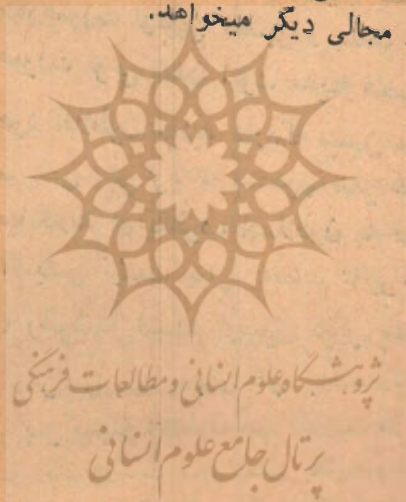 مجالی دیگر میخواهد.
پژوهشگاه علوم انسانی و مطالعات فرهنگی
پرتال جامع علوم انسانی